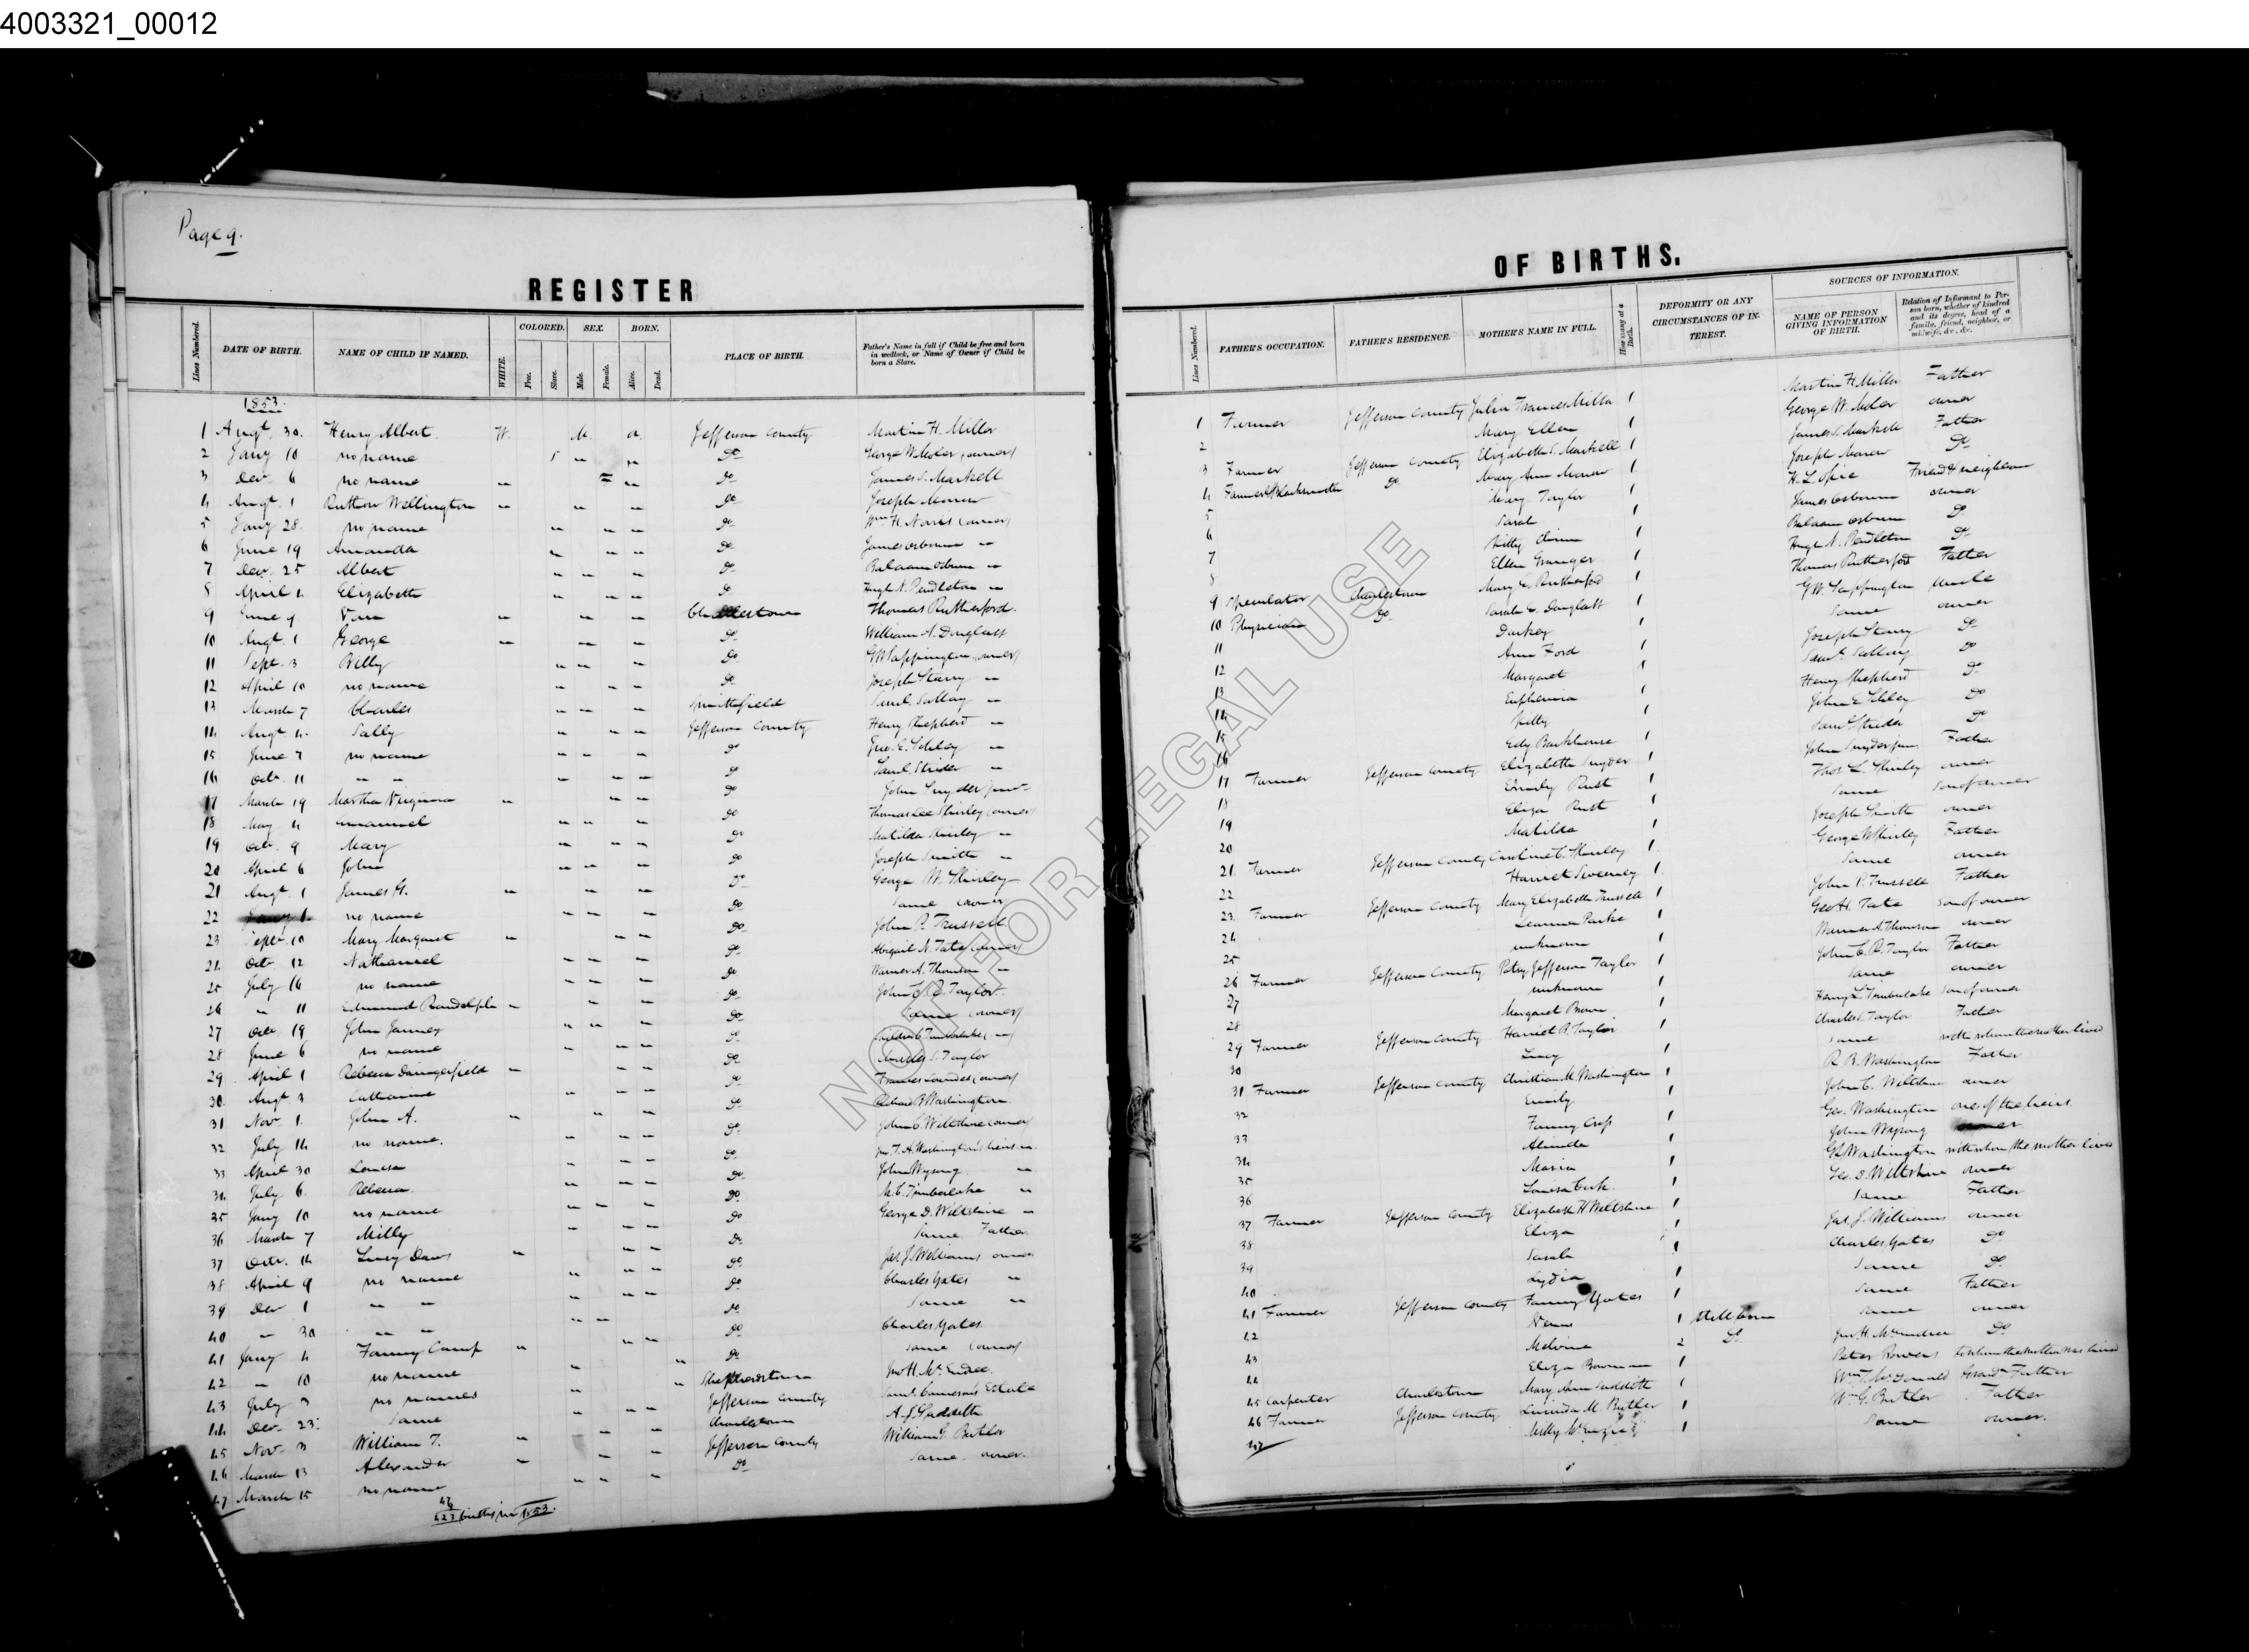 4003321_00012
Page 9.
REGISTER
Lines Numbered. DATE OF BIRTH. NAME OF CHILD IF NAMED. WHITE. COLORED. Free. Slave. SEX. Male. Female. BORN. Alive. Dead. PLACE OF BIRTH. Father's Name in full if Child be free and born in wedlock, or Name of Owner if Child be born a Slave.
1853.
1 Augt 30. Henry Albert. W. M. a. Jefferson County Martin H. Miller
2 Jany 10 no name S " " Do George W. Moler (owner)
3 Decr 6 no name " F " Do James S. Markell
4 Augt 1 Wellington " " " Do Joseph Morrow
5 Jany 28. no name " " " Do Wm H. Norris (owner)
6 June 19 Amanda " " " Do James Osbourn "
7 Decr 25 Albert " " " Do Balaam Osburn "
8 April 4 Elizabeth " " " Do Hugh N. Pendleton "
9 June 9 " " " Charlestown Thomas Rutherford.
10 Augt 1 George " " " Do William A. Douglass
11 Sept. 3 Billy " " " Do GW Sappington (owner)
12 April 10 no name " " " Do Joseph Starry "
13 March 7 Charles " " " Smithfield Saml. "
14 Augt 4. Sally " " " Jefferson County Henry Shepherd "
15 June 7 no name " " " Do Jno. E. Schley "
16 Octr. 11 " " " " " Do Saml. Strider "
17 March 19 Martha Virginia " " " Do John Snyder junr
18 May 4 Emanuel " " " Do Thomas Lee Shirley (owner)
19 Octr. 9 Mary " " " Do Matilda Shirley "
20 April 6 John " " " Do Joseph Smith "
21 Augt 1 James H. " " " Do George W. Shirley
22 no name " " " Do Same (owner)
23 Septr. 10 Mary Margaret " " " Do John P. Trussell
24 Octr. 12 Nathaniel " " " Do Abigail N. Tate (owner)
25 July 14 no name " " " Do Warner A. Thomson "
26 " 11 Edmund Randolph " " " Do John C. R. Taylor.
27 Octr. 19 John Janney " " " Do Same (owner)
28 June 6 no name " " " Do Timberlake
29 April 1 Rebecca Daingerfield " " " Do Charles S. Taylor
30 Augt 3 Catharine " " " Do Frances Lowndes (owner)
31 Nov. 1. John A. " " " Do Richard B Washington.
32 July 14 no name. " " " Do John C. Wiltshire (owner)
33 April 30 Louisa " " " Do Jno. T. A. Washington's heirs "
34 July 6. Rebecca. " " " Do John Wysong. "
35 Jany 10 no name " " " Do M. C. Timberlake "
36 March 7 Milly " " " Do George D. Wiltshire "
37 Octr. 14 Lucy Davis " " " Do Same Father
38 April 9 no name " " " Do Jas J. Williams owner
39 Decr 1 " " " " " Do Charles Yates "
40 " 30 " " " " " Do Same "
41 Jany 4 Fanny Camp " " " Do Charles Yates
42 " 10 no name " " Do Same (owner)
43 July 3 no names " " Shepherdstown Jno H. McEndree.
44 Decr. 23. Same " " " Jefferson County Saml. Cameron's Estate
45 Nov. 3 William T. " " " Charlestown A. J. Suddith
46 March 13 Alexander " " " Jefferson County William G. Butler
47 March 15 no name " " " Do Same owner.
47
423 births in 1853.
OF BIRTHS.
Lines Numbered. FATHER'S OCCUPATION. FATHER'S RESIDENCE. MOTHER'S NAME IN FULL. How many at a Birth. DEFORMITY OR ANY CIRCUMSTANCES OF INTEREST. SOURCES OF INFORMATION. NAME OF PERSON GIVING INFORMATION OF BIRTH. Relation of Informant to Person born, whether of kindred and its degree, head of a family, friend, neighbor, or midwife, &c., &c.
1 Farmer Jefferson County Julia Frances Miller 1 Martin H. Miller Father
2 Mary Ellen 1 George W. Moler owner
3 Farmer Jefferson County Elizabeth S. Markell 1 James S. Markell Father
4 Farmer & Blacksmith Do Mary Ann Morrow 1 Joseph Morrow Do
5 Mary Taylor 1 H. L. Opie Friend & neighbour
6 Sarah 1 James Osbourn owner
7 Kitty 1 Balaam Osburn Do
8 Ellen Granger 1 Hugh N. Pendleton Do
9 Speculator Charlestown Mary E. Rutherford 1 Thomas Rutherford Father
10 Physician Do Sarah E. Douglass 1 G.W. Sappington Uncle
11 Darkey 1 Same owner
12 Ann Ford 1 Joseph Starry Do
13 Margaret 1 Saml. Do
14 Euphemia 1 Henry Shepherd Do
15 Kitty 1 John E. Schley Do
16 Edy Barkhouse 1 Saml Strider Do
17 Farmer Jefferson County Elizabeth Snyder 1 John Snyder junr Father
18 Emily Rust 1 Thos L. Shirley owner
19 Eliza Rust 1 Same Son of owner
20 Matilda 1 Joseph Smith owner
21 Farmer Jefferson County Caroline C. Shirley 1 George W Shirley Father
22 Harriet Sweeney 1 Same owner
23 Farmer Jefferson County Mary Elizabeth Trussell 1 John P. Trussell Father
24 Leanna Parke 1 Geo H. Tate son of owner
25 unknown 1 Warner A. Thomson owner
26 Farmer Jefferson County Patsy Jefferson Taylor 1 John C. R. Taylor Father
27 unknown 1 Same owner
28 Margaret Brown 1 Henry L Timberlake Son of owner
29 Farmer Jefferson County Harriet R. Taylor 1 Charles S. Taylor Father
30 Lucy 1 Same with whom the mother lived
31 Farmer Jefferson County Christian M. Washington 1 R B. Washington Father
32 Emily 1 John C. Wiltshire owner
33 Fanny 1 Geo. Washington one of the heirs.
34 Alinda 1 John Wysong owner
35 Maria 1 Washington with whom the mother lives
36 Louisa Cook. 1 Geo. D. Wiltshire owner
37 Farmer Jefferson County Elizabeth H Wiltshire 1 Same Father
38 Eliza 1 Jas. J. Williams owner
39 Sarah 1 Charles Yates Do
40 Lydia 1 Same Do
41 Farmer Jefferson County Fanny Yates 1 Same Father
42 Venus 1 Still born Same owner
43 Melvina 2 Do. Jno H. McEndree Do.
44 Eliza Bowman 1 Peter Bowers to whom the mother was hired
45 Carpenter Charlestown Mary Ann Suddith 1 Wm T. McDonald Grand Father
46 Farmer Jefferson County Lucinda M. Butler 1 Wm G. Butler Father
47 Milly McKenzie 1 Same owner.
NOT FOR LEGAL USE